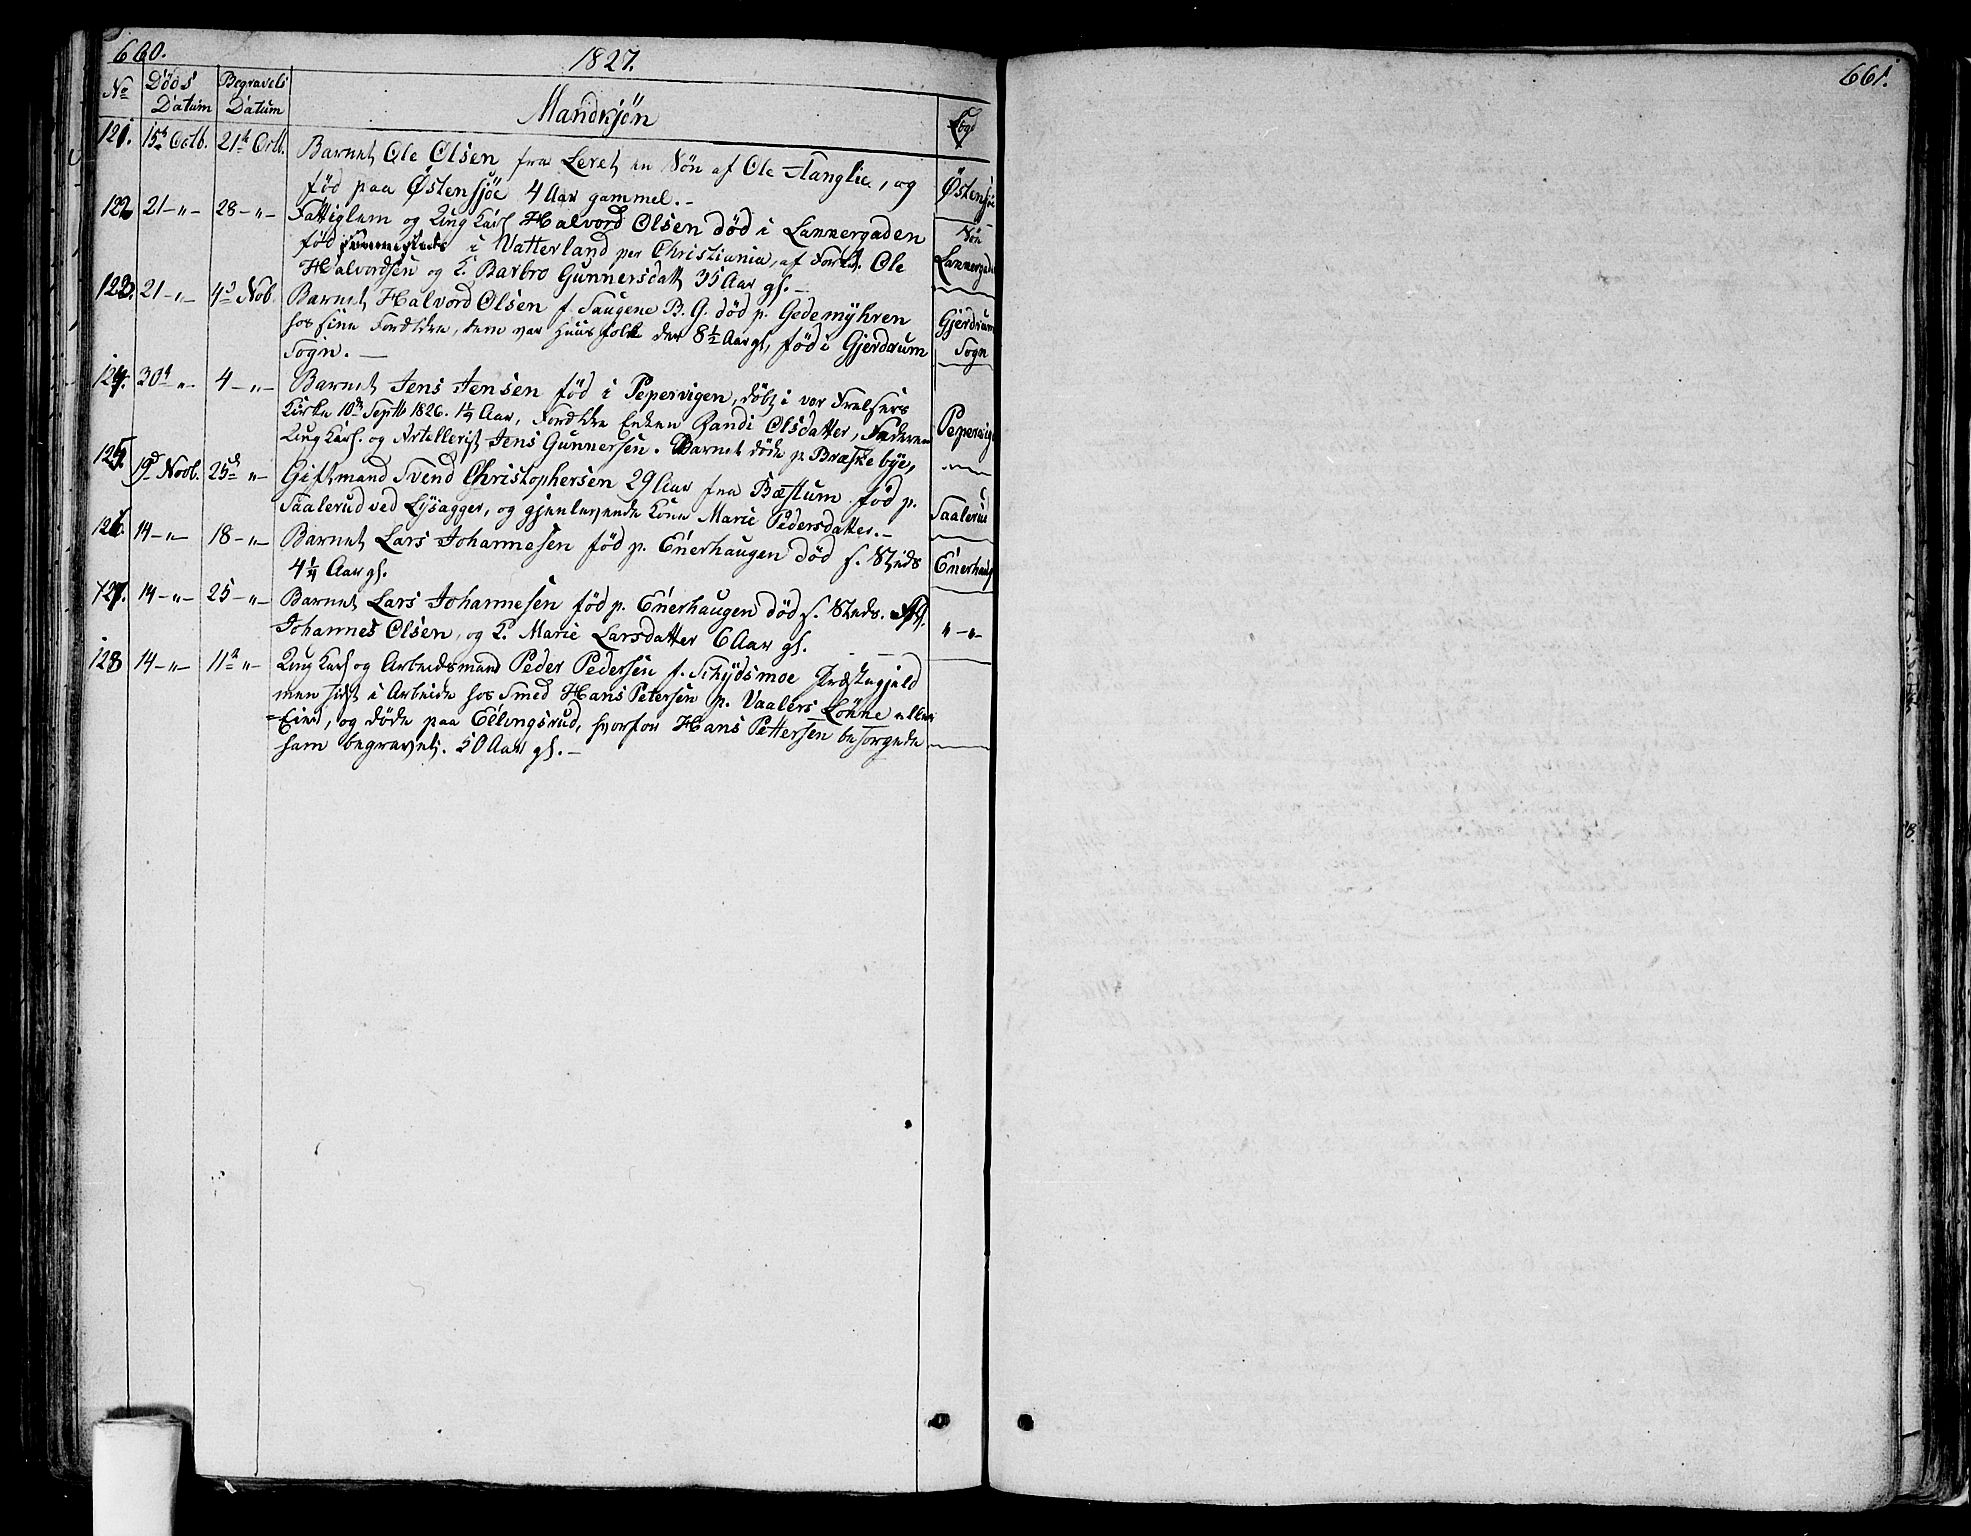 660.
1827.
No
Døds Datum
Begravels Datum
Mandkjøn
121. 15de Octb. 21de Octb. Barnet Ole Olsen fra Leret en Søn af Ole Tanglie, og
fød paa Østensjøe 4 Aar gammel.- Østensjøe
122 21-"- 28-"- Fattiglem og Ung Karl Halvord Olsen død i Lammergaden
fød i Vatterland per Christiania, af Foræld. Ole
Halvordsen og K. Barbro Gunnersdatt 35 Aar gl.- Lammergade
123. 21-"- 4de Nob. Barnet Halvord Olsen f. Saugene B. G. død p. Gedemyhren
hos sine Forældre, dem var Huusfolk der 8½ Aar gl, fød i Gjerdrum
Sogn.- Gjerdrum Sogn
124. 30te "- 4-"- Barnet Jens Jensen fød i Pepervigen, døbt i vor Frelsers
Kirke 10de Septb 1826. 1¼ Aar, Forældre Enken Randi Olsdatter, Faderen
Ung Karl. og Artellerist Jens Gunnersen. Barnet døde p. Bræskebye, Pepervig
125. 19d Novb. 25de "- Giftmand Svend Christophersen 29 Aar fra Bæstum fød p.
Saalerud ved Lysagger, og gjenlevende Kone Marie Pedersdatter.- Saalerud
126. 14-"- 18-"- Barnet Lars Johannesen fød p. Enerhaugen død s. Steds
4¼ Aar gl. Enerhaug
127. 14-"- 25-"- Barnet Lars Johannesen fød p. Enerhaugen død s. Steds.
Johannes Olsen, og K. Marie Larsdatter 6 Aar gl. "-"-
128 14-"- 11te "- Ung Karl og Arbeidsmand Peder Pedersen f. Schydsmoe Præstegjeld
men sidst i Arbeide hos Smed Hans Petersen p. Vaalers Lønne eller
Eier, og døde paa Eelingsrud, hvorfor Hans Pettersen besørgede
ham begravet. 50 Aar gl.-
661.